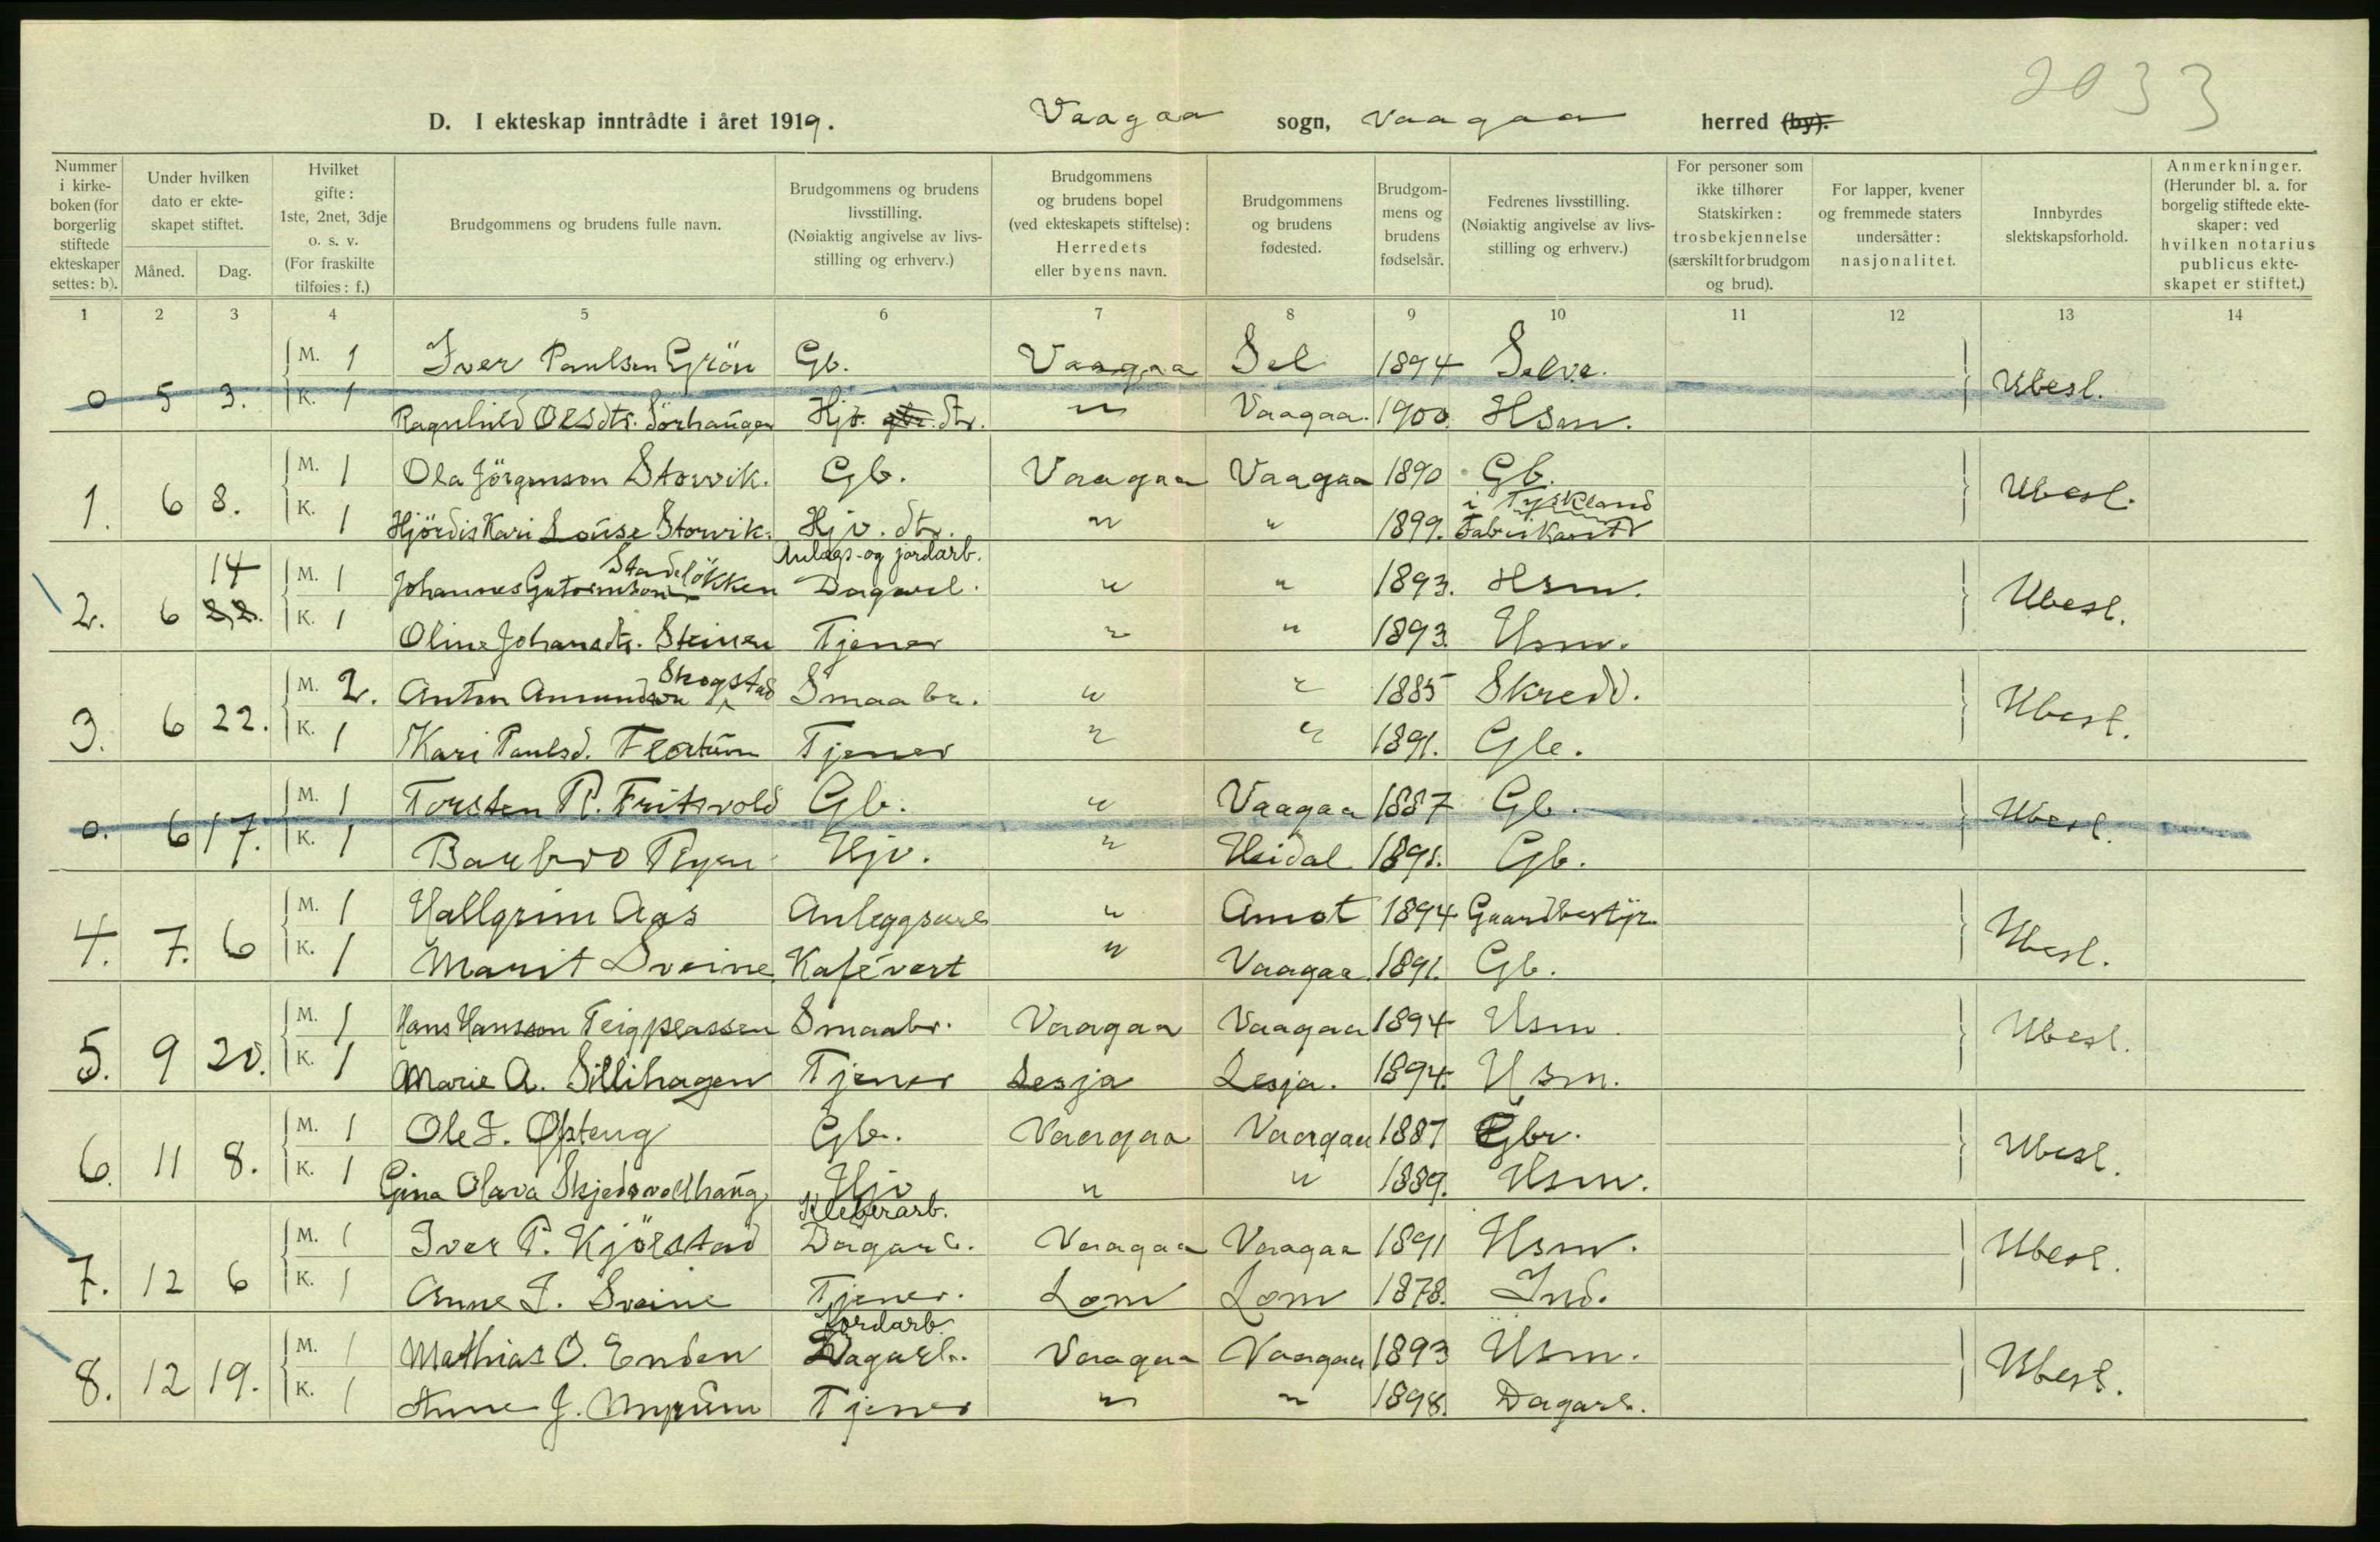 2033
D. I ekteskap inntrådte i året 1919. Vaagaa sogn, Vaagaa herred (by).
Nummer i kirkeboken (for borgerlig stiftede ekteskaper settes: b).
Under hvilken dato er ekteskapet stiftet.
Måned. Dag.
Hvilket gifte: 1ste, 2net, 3dje o. s. v. (For fraskilte tilføies: f.)
Brudgommens og brudens fulle navn.
Brudgommens og brudens livsstilling. (Nøiaktig angivelse av livsstilling og erhverv.)
Brudgommens og brudens bopel (ved ekteskapets stiftelse): Herredets eller byens navn.
Brudgommens og brudens fødested.
Brudgommens og brudens fødselsår.
Fedrenes livsstilling. (Nøiaktig angivelse av livsstilling og erhverv.)
For personer som ikke tilhører Statskirken: trosbekjennelse (særskilt for brudgom og brud).
For lapper, kvener og fremmede staters undersåtter: nasjonalitet.
Innbyrdes slektskapsforhold.
Anmerkninger. (Herunder bl. a. for borgelig stiftede ekteskaper: ved hvilken notarius publicus ekteskapet er stiftet.)
1 2 3 4 5 6 7 8 9 10 11 12 13 14
M. 1 Iver Paulsen Grön Gb. Vaagaa Sel 1894 Selve.
0 5 3. K. 1 Ragnhild Olsdtr. Sörhaugen Hjv. dtr. " Vaagaa. 1900. Hsm. Ubesl.
M. 1 Ola Jörgenson Storvik. Gb. Vaagaa Vaagaa 1890 Gb.
1. 6 8. K. 1 Hjördis Kari Louise Storvik. Hjv. dtr. " " 1899. Fabrikant i Tyskland Ubesl.
14 M. 1 Johannes Gutormson Stadelökken Anlags- og jordarb. Dagarb. " " 1893. Hsm.
2. 6 22. K. 1 Oline Johansdtr. Steinen Tjener " " 1893. Husm. Ubesl.
M. 2. Anton Amundson Skogstad Smaabr. " " 1885 Skredd.
3. 6 22. K. 1 Kari Paulsd. Flatum Tjener " " 1891. Gbr. Ubesl.
M. 1 Torsten P. Fritsvold Gb. " Vaagaa 1887 Gb.
0. 6 17. K. 1 Barbro Hjv. " Heidal 1891. Gb. Ubesl.
M. 1 Hallgrim Aas Anleggsarb " Amot 1894 Gaardbestyr.
4. 7. 6 K. 1 Marit Sveine Kafévert " Vaagaa 1891. Gb. Ubesl.
M. 1 Hans Hansson Teigplassen Smaabr. Vaagaa Vaagaa 1894 Husm.
5. 9 20. K. 1 Marie A. Sillihagen Tjener Lesja Lesja. 1894. Husm. Ubesl.
M. 1 Ole I. Öfsteng Gb. Vaagaa Vaagaa 1887 Gbr.
6. 11 8. K. 1 Gina Olava Skjedsvollhaug Hjv " " 1889. Husm. Ubesl.
M. 1 Iver P. Kjörstad Kleberarb. Dagarb. Vaagaa Vaagaa 1891 Husm.
7. 12 6 K. 1 Anne I. Sveine Tjener. Lom Lom 1878. Ind. Ubesl.
M. 1 Mathias O. Enden Jordarb. Dagarb. Vaagaa Vaagaa 1893 Husm.
8. 12 19. K. 1 Anne J. Tjener " " 1898. Dagarb. Ubesl.